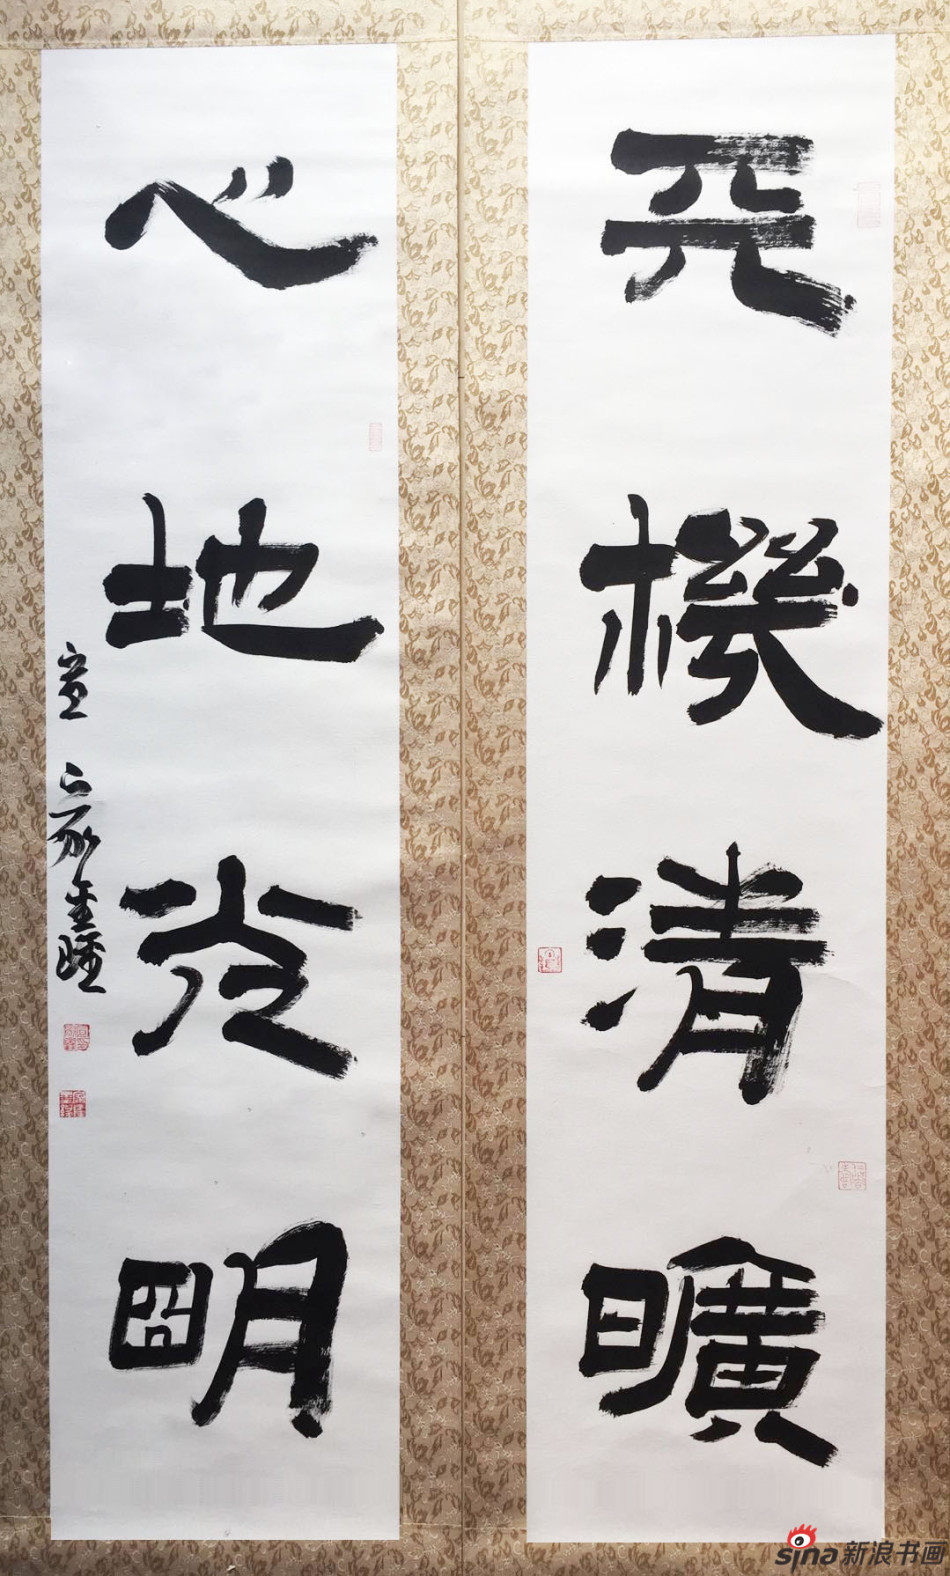 天機清曠
心地光明
sina新浪书画